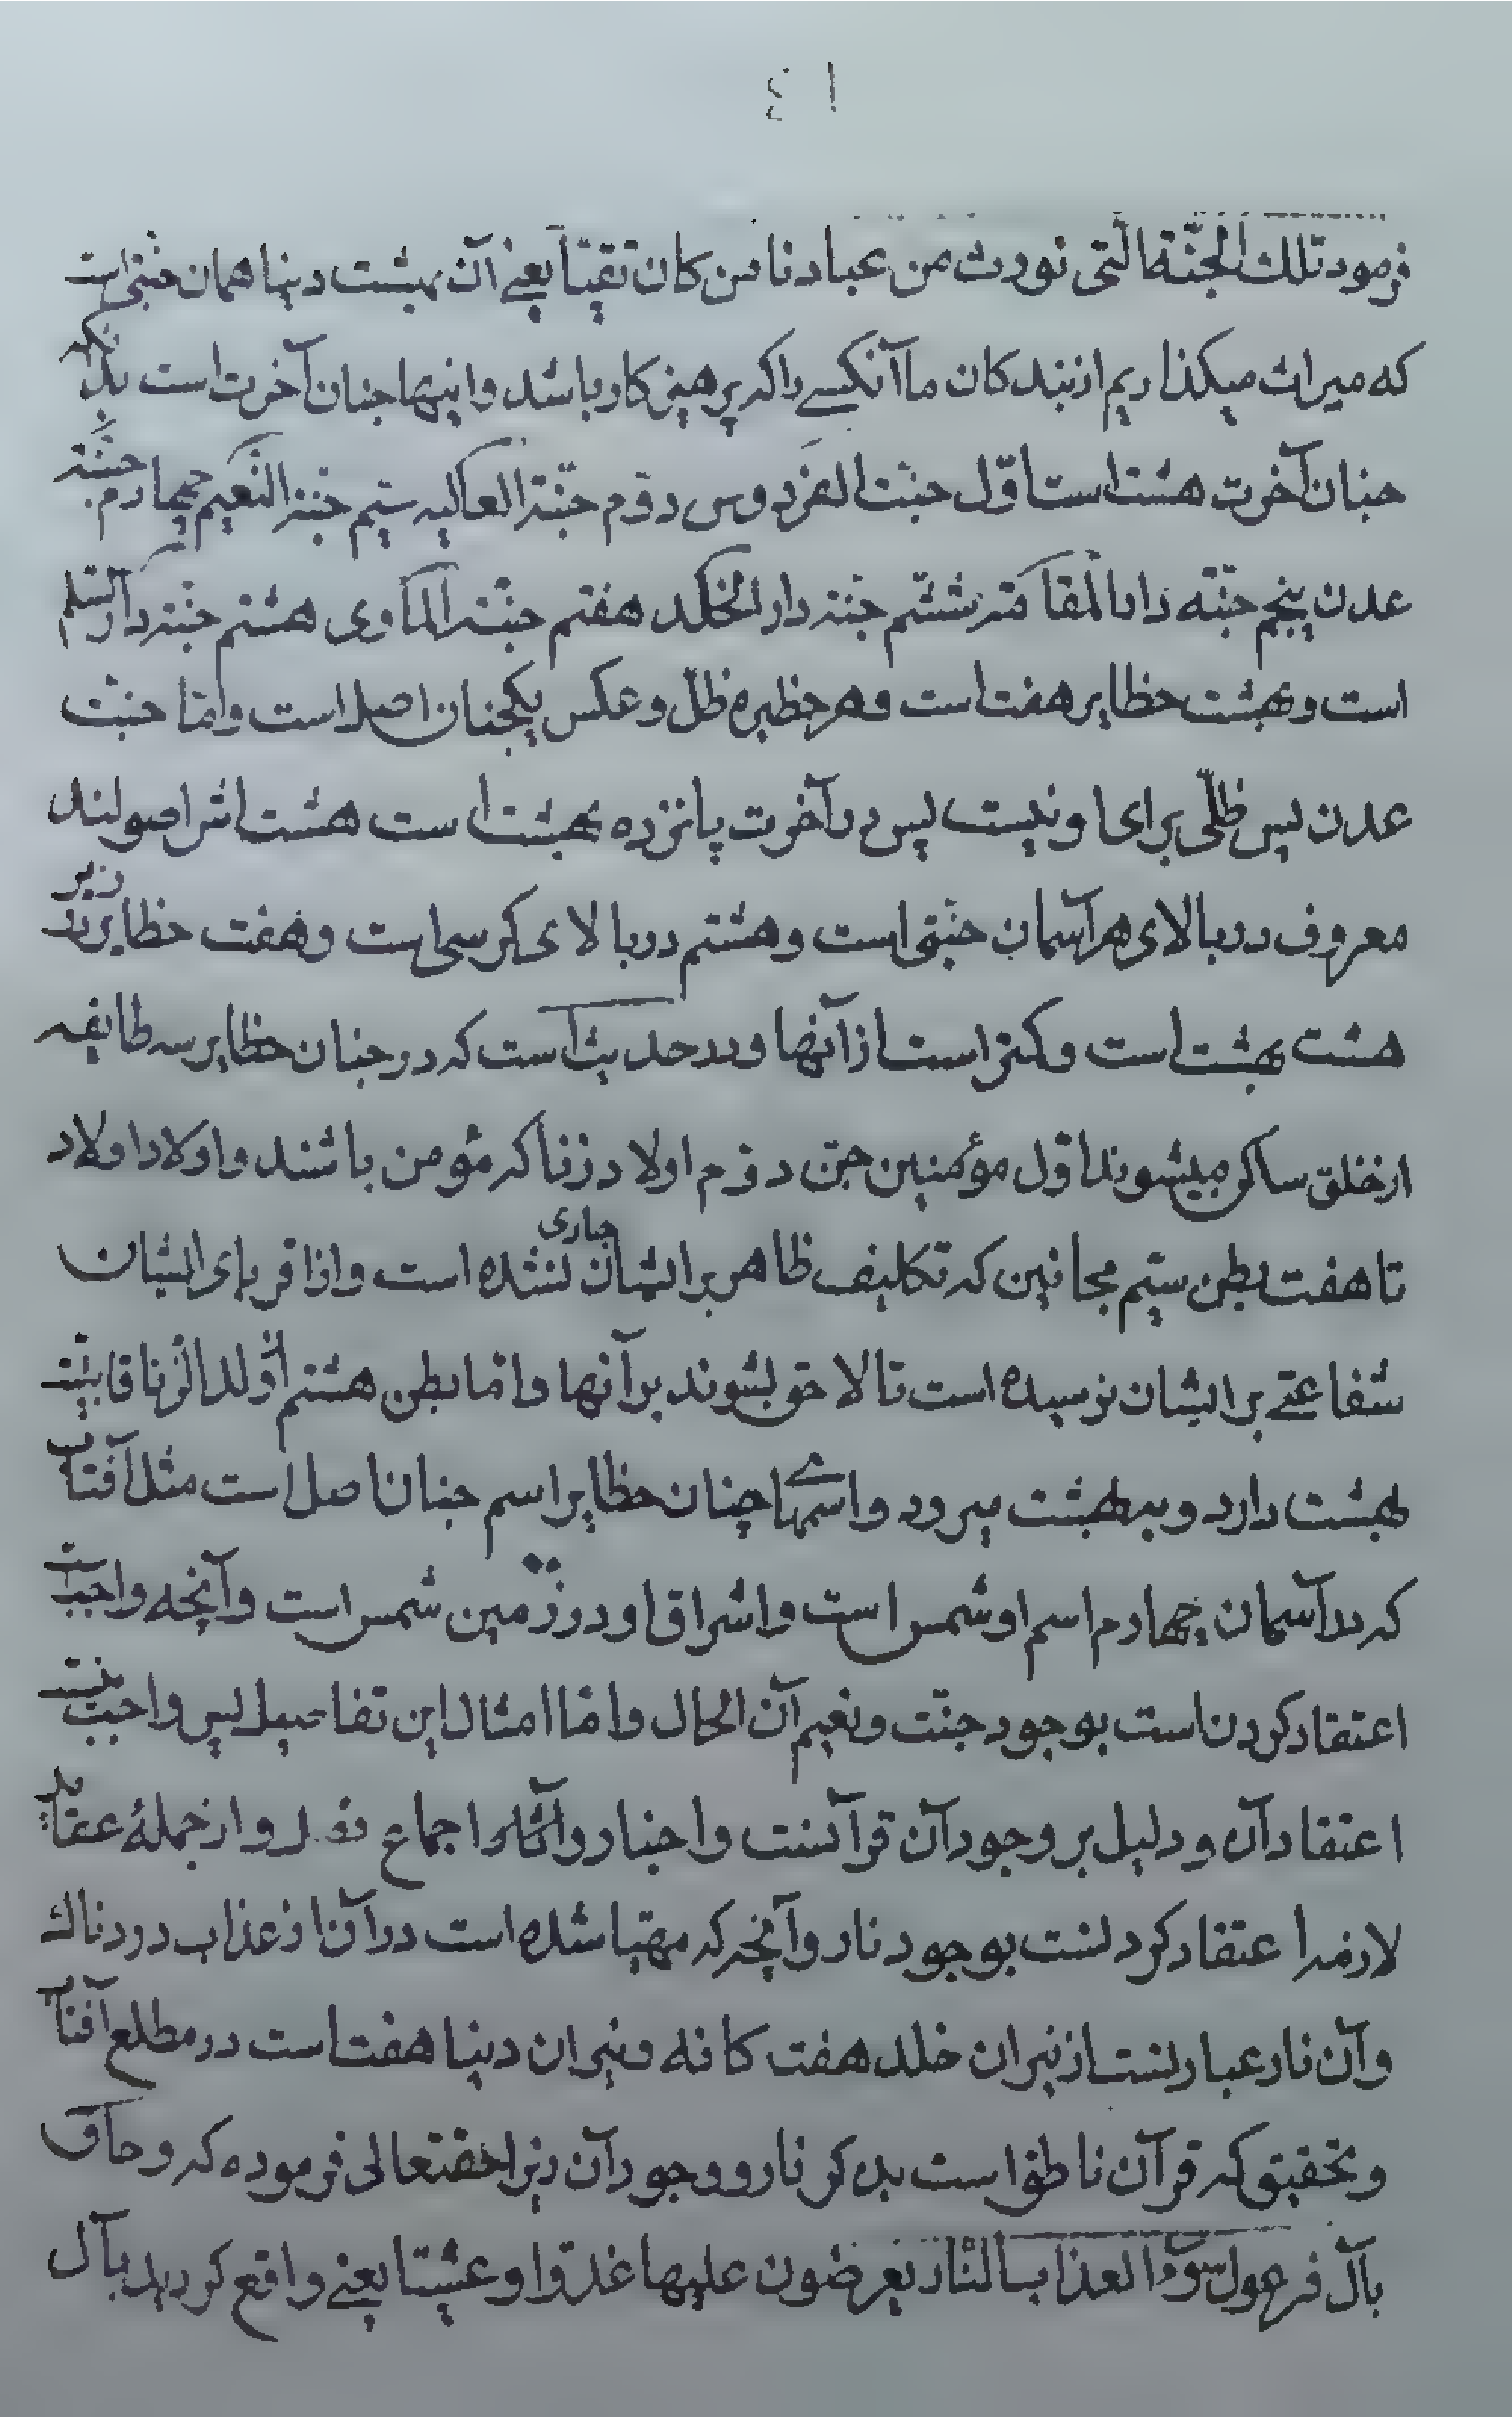 ٤١
فرمود تلك الجنّة الّتی نورث من عبادنا من کان تقیّاً یعنے آن بهشت دنیا همان جنّتی است
که میراث میکذاریم از بندکان ما آنکسے را که پرهیزکار باشد و اینها جنان آخرت است بدانکه
جنان آخرت هشت است اوّل جنّت الفردوس دوّم جنّة العالیه سیّم جنّة النّعیم چهارم جنّة
عدن پنجم جنّه دار المقامة ششم جنّة دار الخلد هفتم جنّة المأوی هشتم جنّة دار السّلم
است و بهشت حظایر هفت است و هر حظیره ظلّ و عکس یکجنان اصل است و امّا جنّت
عدن پس ظلّی برای او نیست پس در آخرت پانزده بهشت است هشت اش اصولند
معروف در بالای هر آسمان جنّتی است و هشتم در بالای کرسی است و هفت حظایر در زیر
هشت بهشت است و کمتر است از آنها و در حدیث است که در جنان حظایر سه طایفه
از خلق ساکن میشوند اوّل مؤمنین جنّ دوّم اولاد زنا که مؤمن باشند و اولاد اولاد
تا هفت بطن سیّم مجانین که تکالیف ظاهر بر ایشان جاری نشده است و از اقربای ایشان
شفاعتے بر ایشان نرسیده است تا لاحق بشوند بر آنها و امّا بطن هشتم از ولد الزّنا قابلیّت
بهشت دارد و ببهشت میرود و اسمهاے جنان حظایر اسم جنان اصل است مثل آفتاب
که در آسمان چهارم اسم او شمس است و اشراق او در زمین شمس است و آنچه واجب است
اعتقاد کردن است بوجود جنّت و نعیم آن الحال و امّا امثال این تفاصیل پس واجب نیست
اعتقاد آن و دلیل بر وجود آن قرآنست و اخبار و آثار و اجماع و از جملهٔ عقاید
لازمه اعتقاد کردنست بوجود نار و آنچه که مهیّا شده است در آن از عذاب دردناك
و آن نار عبارتست از نیران خلد هفت کانه و نیران دنیا هفت است در مطلع آفتاب
و بتحقیق که قرآن ناطق است بذکر نار و وجود آن زیرا حقتعالی فرموده که و حاق
بآل فرعون سوء العذاب النّار یعرضون علیها غدوّا و عشیّا یعنے واقع کردید بآل